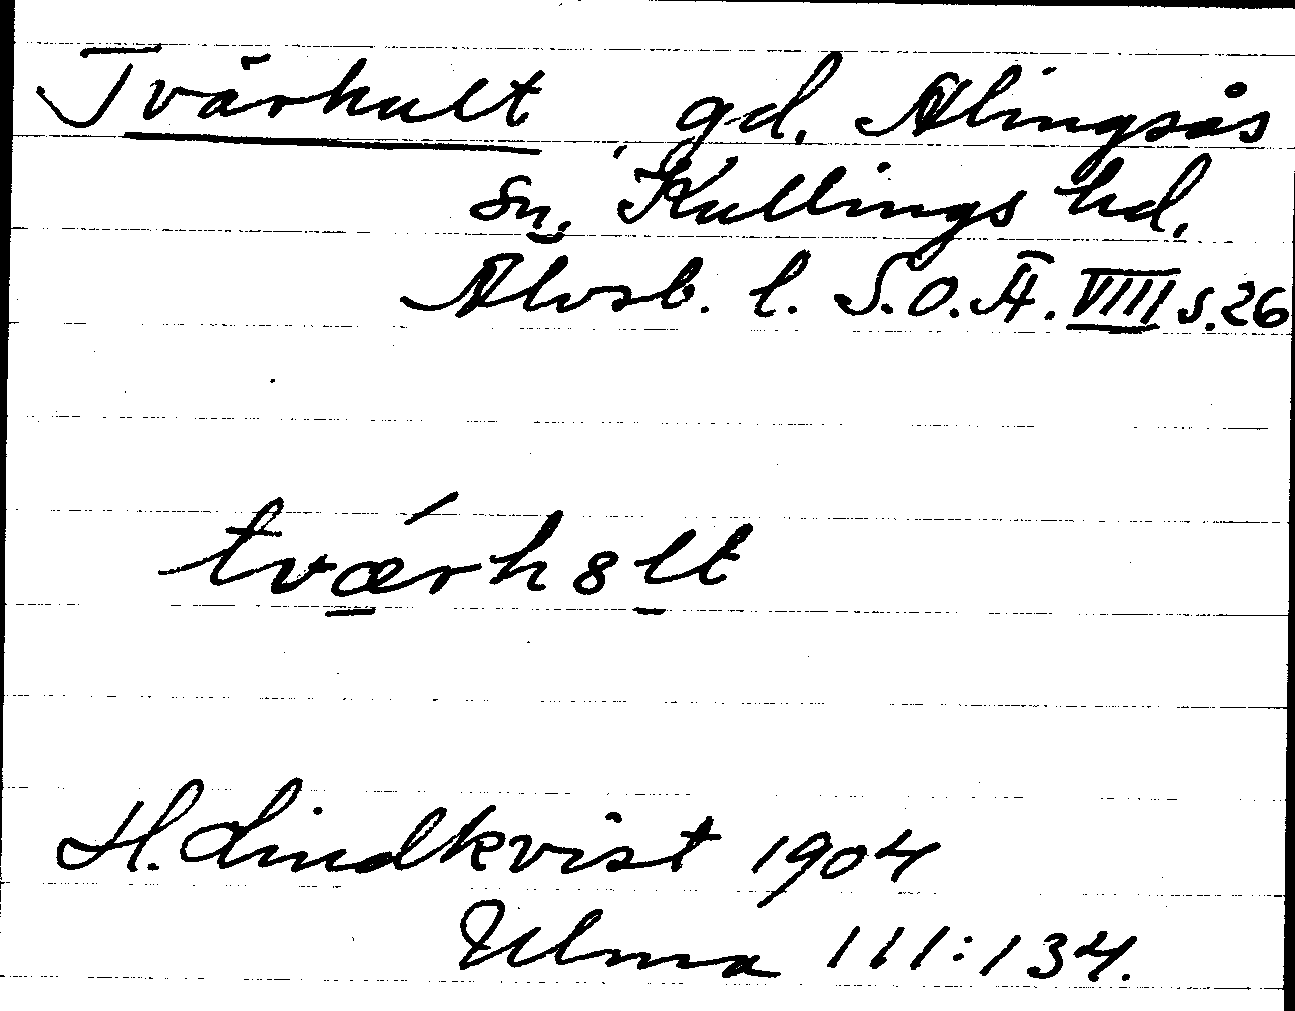 Tvärhult gd. Alingsås
sn, Kullings hd.
Älvsb. l. S.O.Ä. VIII s.26
tværh8lt
H. Lindkvist 1904
Ulma 111:134.